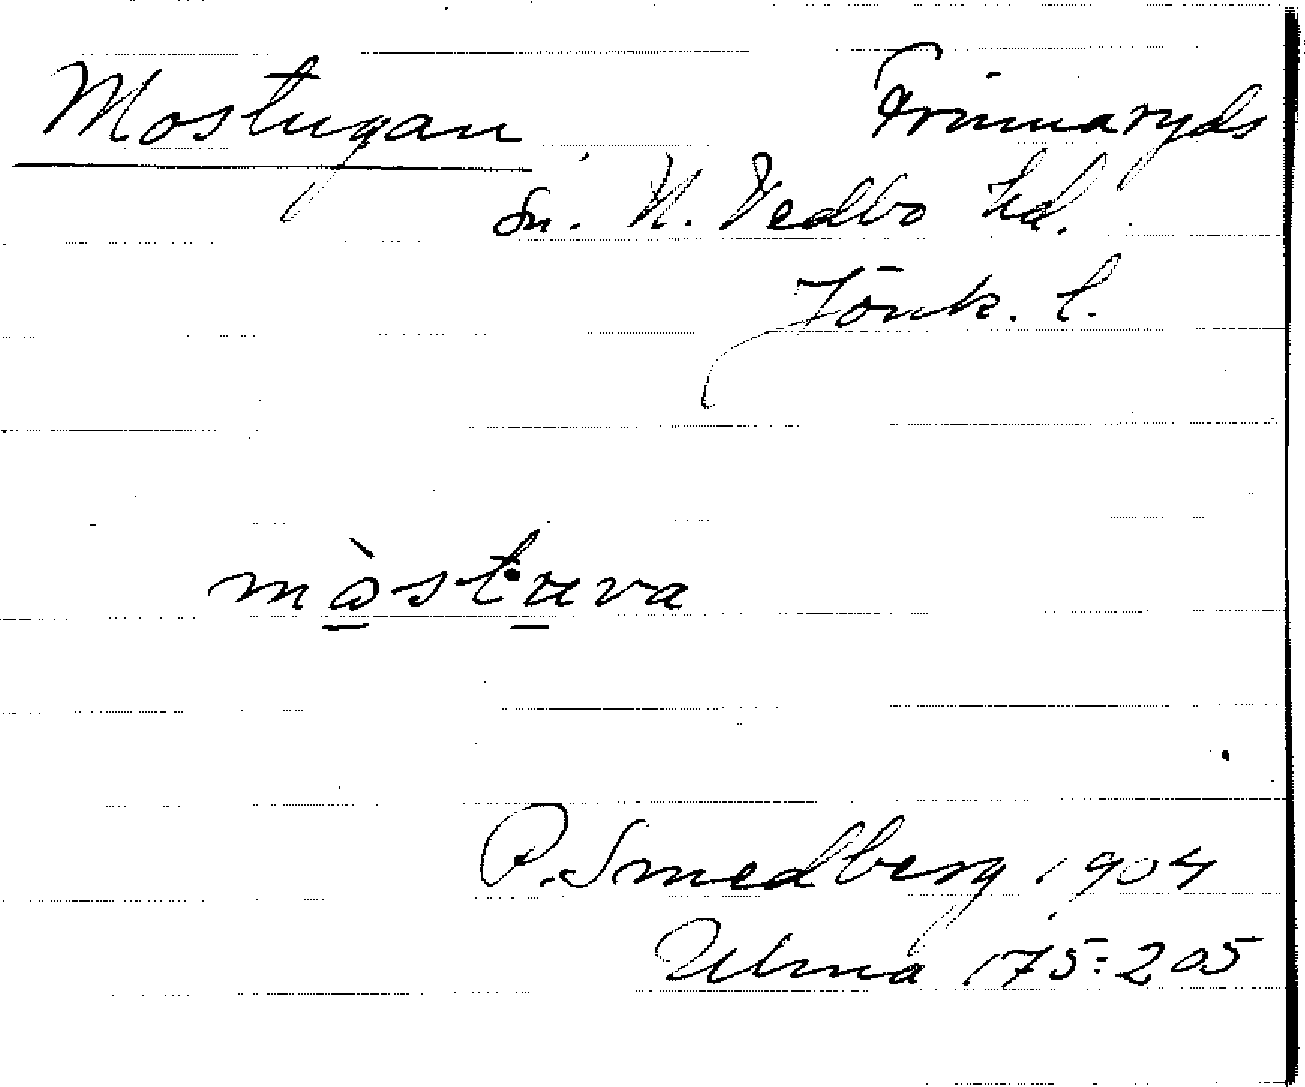 Mostugan Frinnaryds
Sn. N. Vedbo hd.
Jönk. l.
mòst·uva
P. Smedberg 1904
Ulma 175:205